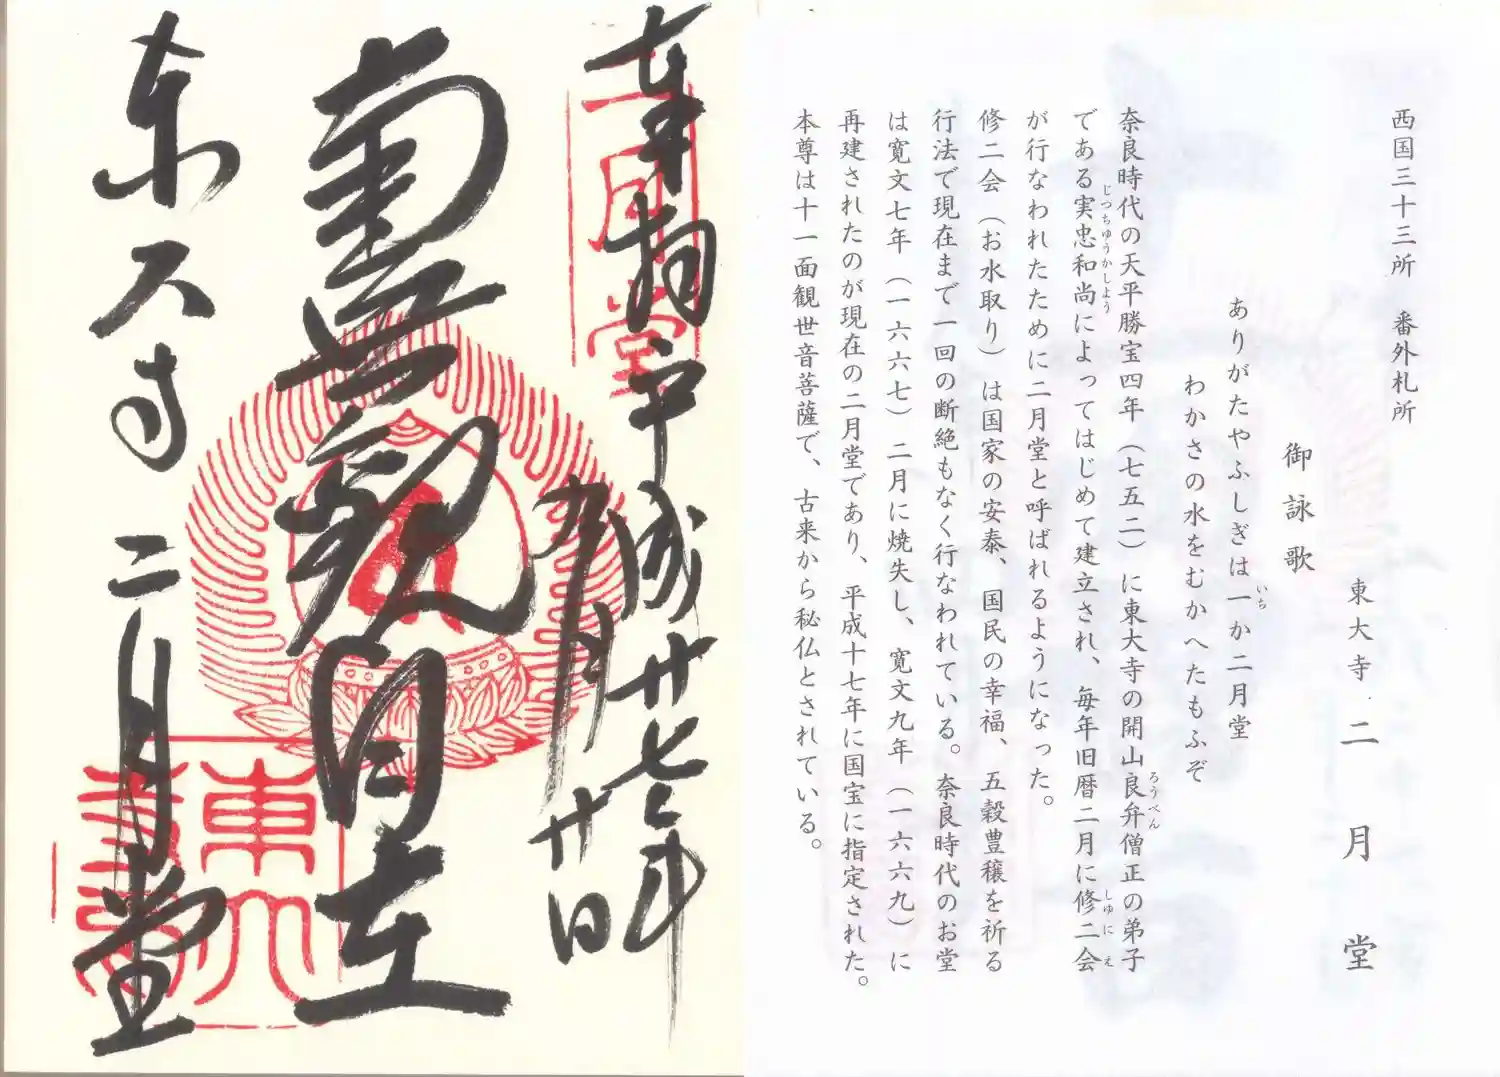 西国三十三所　番外札所
東大寺 二月堂
御詠歌
ありがたやふしぎは一か二月堂
いち
わかさの水をむかへたもふぞ
奈良時代の天平勝宝四年（七五二）に東大寺の開山良弁僧正の弟子
ろうべん
である実忠和尚によってはじめて建立され、毎年旧暦二月に修二会
じつちゆうかしよう
しゆにえ
が行なわれたために二月堂と呼ばれるようになった。
修二会（お水取り）は国家の安泰、国民の幸福、五穀豊穣を祈る
行法で現在まで一回の断絶もなく行なわれている。奈良時代のお堂
は寛文七年（一六六七）二月に焼失し、寛文九年（一六六九）に
再建されたのが現在の二月堂であり、平成十七年に国宝に指定された。
本尊は十一面観世音菩薩で、古来から秘仏とされている。
奉拝 平成廿七年
九月廿日
二月堂
南無観自在
東大寺 二月堂
東大